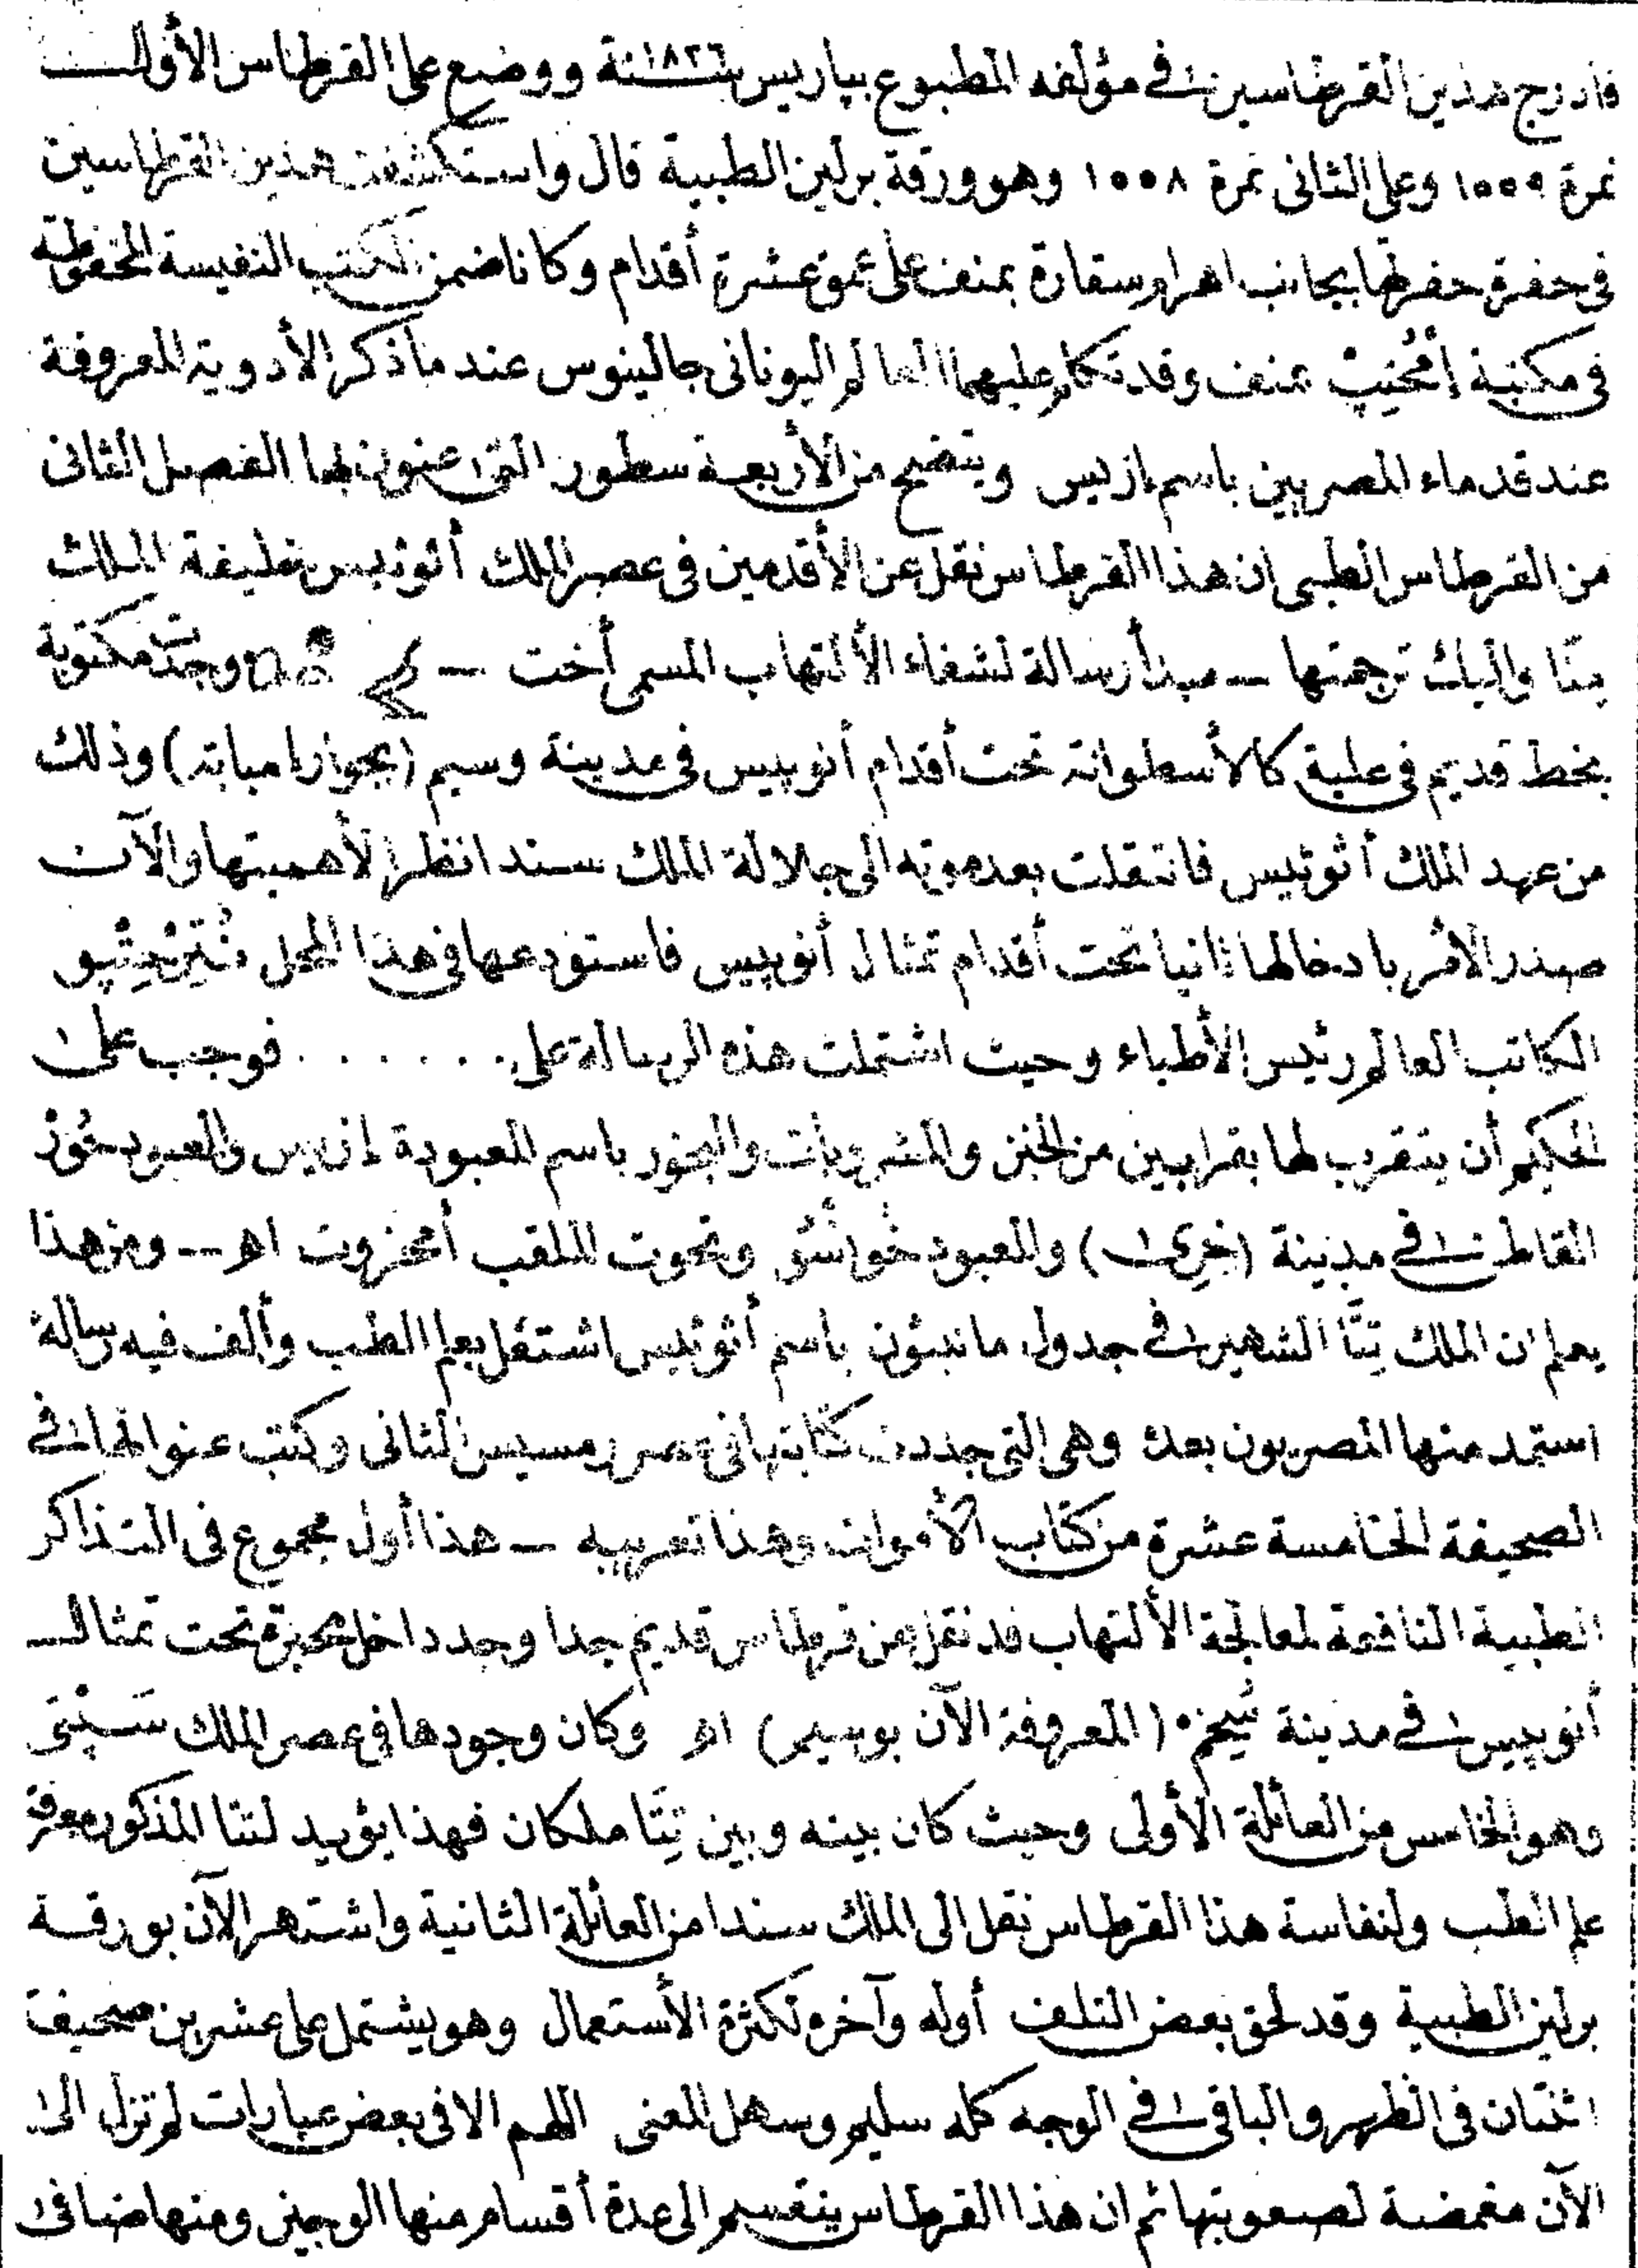 فأدرج هذين القرطاسين في مؤلفه المطبوع بباريس سنة ١٨٢٦ ووضع على القرطاس الأول
نمرة ١٥٥٩ وعلى الثانى نمرة ١٥٥٨ وهو ورقة برلين الطبية قال واستكشفت هذين القرطاسين
فى حفرة حفرتها بجانب اهرام سقارة بمنف على عمق عشرة أقدام وكانا ضمن الكتب النفيسة المحفوظة
فى مكتبة إمحُتِبْ بمنف وقد تكلم عليهما العالم اليونانى جالينوس عند ما ذكر الأدوية المعروفة
عند قدماء المصريين باسم ازيس ويتضح من الأربعة سطور التى عنون بها الفصل الثانى
من القرطاس الطبى ان هذا القرطاس نقل عن الأقدمين فى عصر الملك أثوثيس خليفة الملك
منّا واليك ترجمتها — مبدأ رسالة لشفاء الألتهاب المسمى أخت — وجدت مكتوبة
بخط قديم فى علبة كالأسطوانة تحت أقدام أنوبيس فى مدينة وسيم (بجوار امبابة) وذلك
من عهد الملك أثوثيس فانتقلت بعد موته الى جلالة الملك سندا نظرا لأهميتها والآن
صدر الأمر بادخالها ثانيا تحت أقدام تمثال أنوبيس فاستودعها فى هذا المحل
الكاتب العالم رئيس الأطباء وحيث اشتملت هذه الرسالة على . . . . . . . فوجب على
الحكيم أن يتقرب لها بقرابين من الخبز والمشروبات والبخور باسم المعبودة إزيس والمعبود حُوَرْ
القاطن في مدينة والمعبود خُوانسُو وتحوت الملقب أمحزوت اهـ — ومن هذا
يعلم ان الملك تِتَّا الشهير في جدول مانيثون باسم أثوثيس اشتغل بعلم الطب وألف فيه رسالة
استمد منها المصريون بعده وهى التى جددت كتابتها فى عصر رمسيس الثانى وكتب عنوانها في
الصحيفة الخامسة عشرة من كتاب الأموات وهذا تعريبه — هذا أول مجموع فى التذاكر
الطبية النافعة لمعالجة الألتهاب قد نقل عن قرطاس قديم جدا وجد داخل محبرة تحت تمثال
أنوبيس في مدينة سُخِم (المعروفة الآن بوسيم) اهـ وكان وجودها فى عصر الملك سَپْتِى
وهو الخامس من العائلة الأولى وحيث كان بينه وبين تِتَّا ملكان فهذا يؤيد لتتا المذكور معرفة
علم الطب ولنفاسة هذا القرطاس نقل الى الملك سندا من العائلة الثانية واشتهر الآن بورقة
برلين الطبية وقد لحق بعض التلف أوله وآخره لكثرة الأستعمال وهو يشتمل على عشرين صحيفة
اثنتان فى الظهر والباقى في الوجه كله سليم وسهل المعنى اللهم الا فى بعض عبارات لم تزل الى
الآن مغمضة لصعوبتها ثم ان هذا القرطاس ينقسم الى عدة أقسام منها الوجيز ومنها ضافى